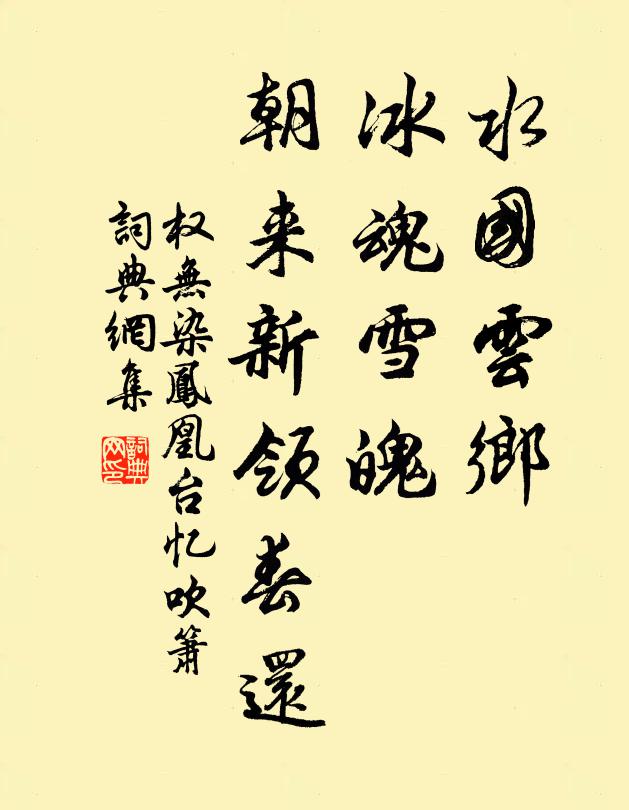 水國雲鄉
冰魂雪魄
朝来新領春還
权無染鳳凰台忆吹簫
詞典網集
詞典网印